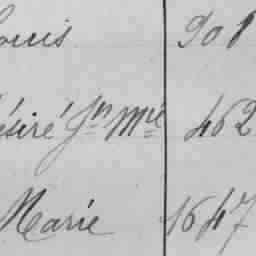 Louis 901
Désiré Jn Mie 462
Marie 1647